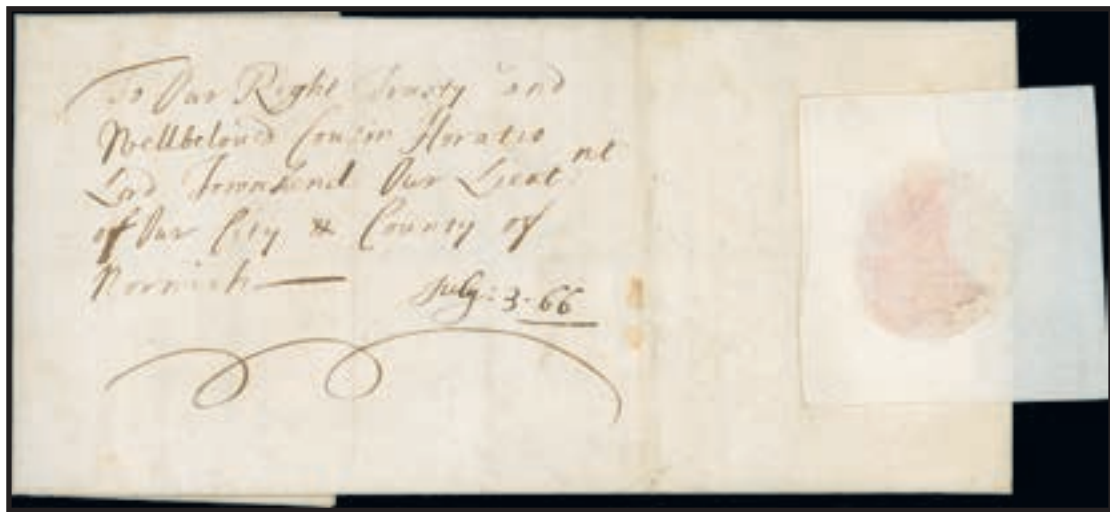 To Our Right Trusty and
Wellbeloved Cousin Horatio
Lord Townshend Our Lieut.nt
of Our City & County of
Norwich
July: 3. 66